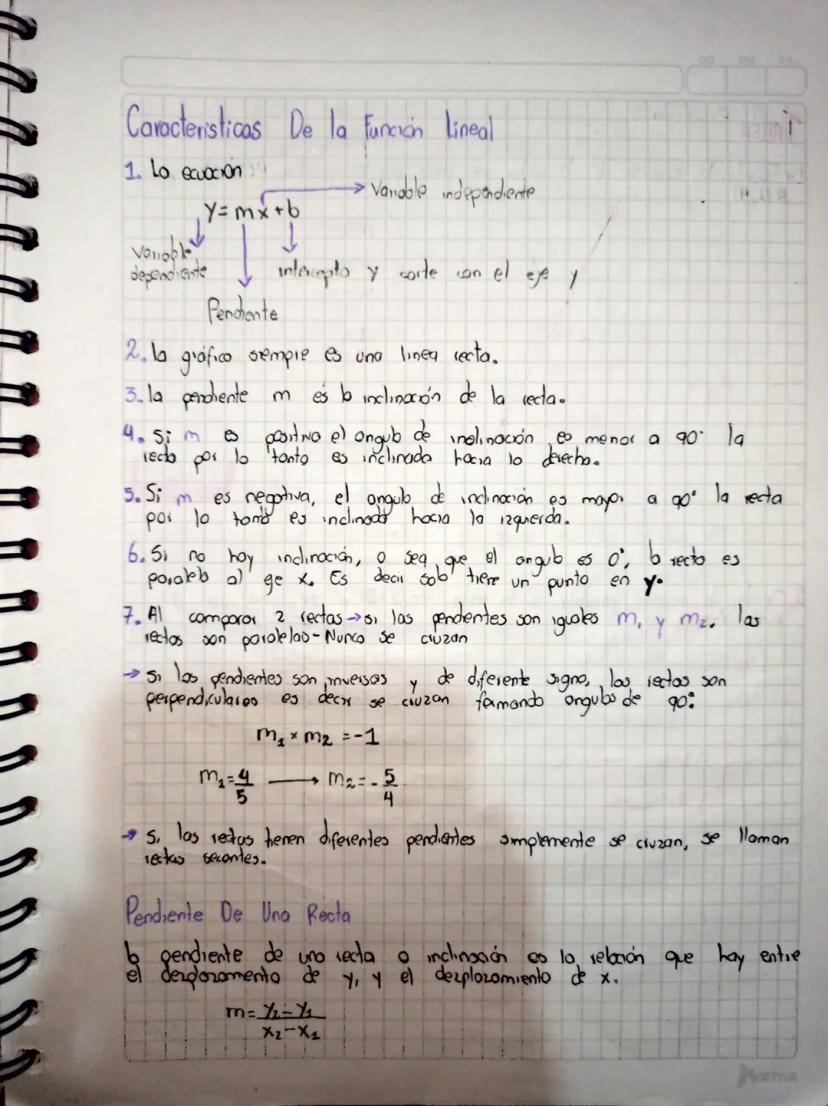 Caracteristicas De la Función Lineal
1. La ecuación
y = mx + b → Variable independiente
Variable dependiente
intercepto y corte con el eje y
Pendiente
2. la gráfica siempre es una linea recta.
3. la pendiente m es la inclinación de la recta.
4. Si m es positiva el angulo de inclinación es menor a 90° la
recta por lo tanto es inclinada hacia la derecha.
5. Si m es negativa, el angulo de inclinación es mayor a 90° la recta
por lo tanto es inclinada hacia la izquierda.
6. Si no hay inclinación, o sea que el angulo es 0°, la recta es
paralela al eje x. Es decir solo tiene un punto en y.
7. Al comparar 2 rectas → si las pendientes son iguales m₁ y m₂. las
rectas son paralelas - Nunca se cruzan
→ si las pendientes son inversas y de diferente signo, las rectas son
perpendiculares es decir se cruzan formando angulos de 90°:
m₁ × m₂ = -1
m₁ = 4/5 → m₂ = - 5/4
→ si las rectas tienen diferentes pendientes simplemente se cruzan, se llaman
rectas secantes.
Pendiente De Una Recta
la pendiente de una recta o inclinación es la relación que hay entre
el desplazamento de y, y el desplazamiento de x.
m = y₂ - y₁ / x₂ - x₁
norma